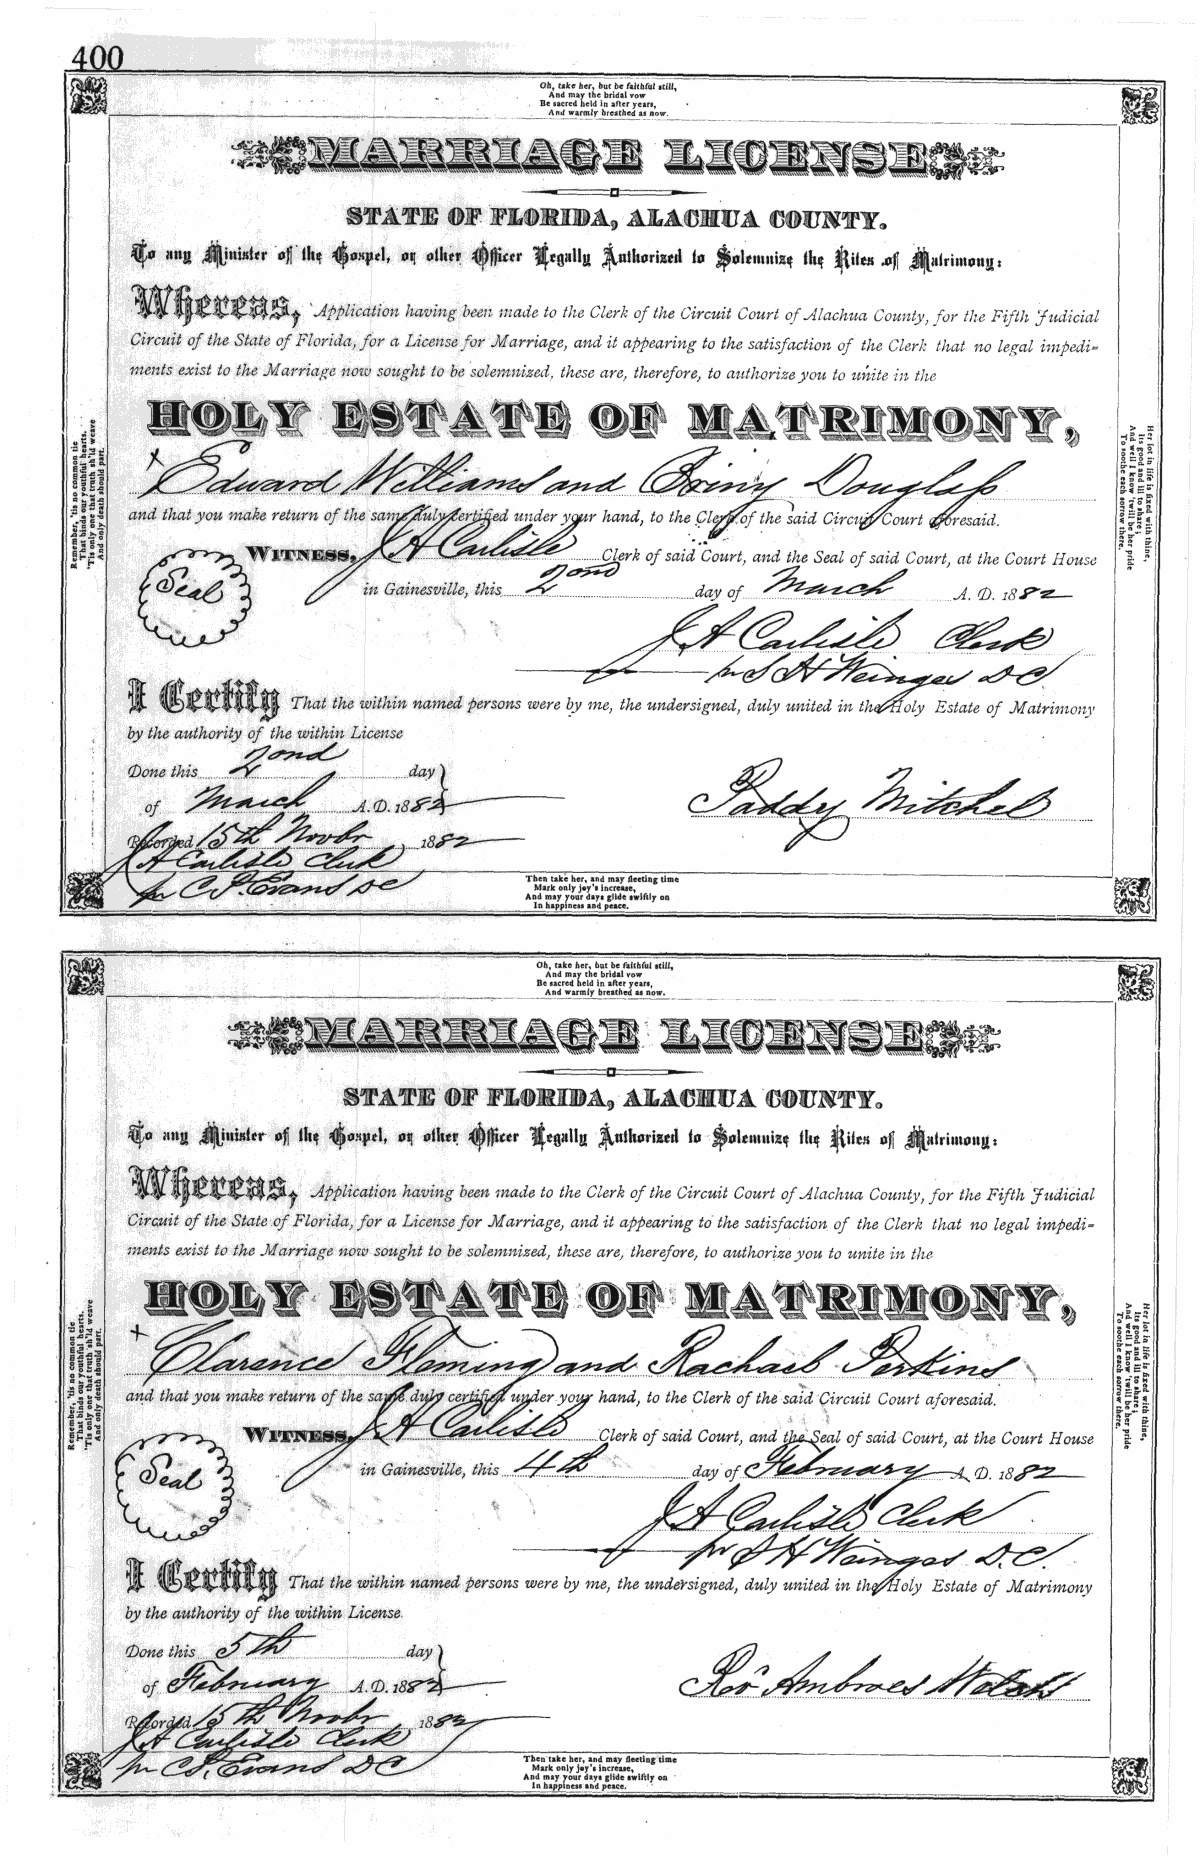 400
Oh, take her, but be faithful still,
And may the bridal vow
Be sacred held in after years,
And warmly breathed as now.
MARRIAGE LICENSE
STATE OF FLORIDA, ALACHUA COUNTY.
To any Minister of the Gospel, or other Officer Legally Authorized to Solemnize the Rites of Matrimony:
Whereas, Application having been made to the Clerk of the Circuit Court of Alachua County, for the Fifth Judicial
Circuit of the State of Florida, for a License for Marriage, and it appearing to the satisfaction of the Clerk that no legal impedi-
ments exist to the Marriage now sought to be solemnized, these are, therefore, to authorize you to unite in the
HOLY ESTATE OF MATRIMONY,
x Edward Williams and Douglass
and that you make return of the same duly certified under your hand, to the Clerk of the said Circuit Court aforesaid.
WITNESS, J A Carlisle Clerk of said Court, and the Seal of said Court, at the Court House
Seal
in Gainesville, this 2ond day of March A. D. 1882
J A Carlisle Clerk
pr S H Weinges DC
I Certify That the within named persons were by me, the undersigned, duly united in the Holy Estate of Matrimony
by the authority of the within License
Done this 2ond day
of March A.D. 1882
Paddy Mitchel
Recorded 15th Novbr 1882
J A Carlisle Clerk
pr C J. Evans DC
Remember, 'tis no common tie
That binds our youthful hearts.
'Tis only one that truth sh'ld weave
And only death should part.
Her lot in life is fixed with thine,
Its good and ill to share;
And well I know 'twill be her pride
To soothe each sorrow there.
Then take her, and may fleeting time
Mark only joy's increase,
And may your days glide swiftly on
In happiness and peace.
Oh, take her, but be faithful still,
And may the bridal vow
Be sacred held in after years,
And warmly breathed as now.
MARRIAGE LICENSE
STATE OF FLORIDA, ALACHUA COUNTY.
To any Minister of the Gospel, or other Officer Legally Authorized to Solemnize the Rites of Matrimony:
Whereas, Application having been made to the Clerk of the Circuit Court of Alachua County, for the Fifth Judicial
Circuit of the State of Florida, for a License for Marriage, and it appearing to the satisfaction of the Clerk that no legal impedi-
ments exist to the Marriage now sought to be solemnized, these are, therefore, to authorize you to unite in the
HOLY ESTATE OF MATRIMONY,
x Clarence Fleming and Rachael Perkins
and that you make return of the same duly certified under your hand, to the Clerk of the said Circuit Court aforesaid.
WITNESS, J A Carlisle Clerk of said Court, and the Seal of said Court, at the Court House
Seal
in Gainesville, this 4th day of February A. D. 1882
J A Carlisle Clerk
pr S H Weinges D.C.
I Certify That the within named persons were by me, the undersigned, duly united in the Holy Estate of Matrimony
by the authority of the within License.
Done this 5th day
of February A.D. 1882
Rev Ambroes
Recorded 15th Novbr 1882
J A Carlisle Clerk
pr C J. Evans DC
Remember, 'tis no common tie
That binds our youthful hearts.
'Tis only one that truth sh'ld weave
And only death should part.
Her lot in life is fixed with thine,
Its good and ill to share;
And well I know 'twill be her pride
To soothe each sorrow there.
Then take her, and may fleeting time
Mark only joy's increase,
And may your days glide swiftly on
In happiness and peace.